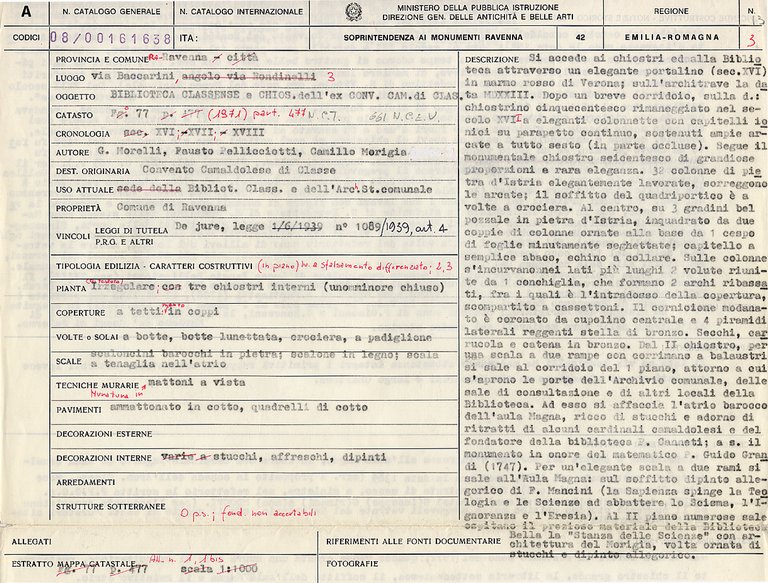 A
N. CATALOGO GENERALE
N. CATALOGO INTERNAZIONALE
MINISTERO DELLA PUBBLICA ISTRUZIONE
DIREZIONE GEN. DELLE ANTICHITÀ E BELLE ARTI
REGIONE
N.
CODICI
08/00161638
ITA:
SOPRINTENDENZA AI MONUMENTI RAVENNA
42
EMILIA-ROMAGNA
3
PROVINCIA E COMUNE: RA- Ravenna - città
LUOGO via Baccarini, angolo via Rondinelli 3
OGGETTO BIBLIOTECA CLASSENSE e CHIOS. dell'ex CONV. CAM. di CLAS.
CATASTO Fg° 77 p. 477 (1971) part. 477 N.C.T. 661 N.C.E.U.
CRONOLOGIA sec. XVI; XVII - XVIII
AUTORE G. Morelli, Fausto Pellicciotti, Camillo Morigia
DEST. ORIGINARIA Convento Camaldolese di Classe
USO ATTUALE sede della Bibliot. Class. e dell'Arch.St.comunale
PROPRIETÀ Comune di Ravenna
VINCOLI LEGGI DI TUTELA De jure, legge 1/6/1939 n° 1089/1939, art. 4
P.R.G. E ALTRI
TIPOLOGIA EDILIZIA - CARATTERI COSTRUTTIVI (in piano) liv. a sfalsamento differenziato; 2, 3
PIANTA irregolare; con tre chiostri interni (uno minore chiuso)
COPERTURE a tetti; manto in coppi
VOLTE o SOLAI a botte, botte lunettata, crociera, a padiglione
SCALE scaloncini barocchi in pietra; scalone in legno; scala
a tenaglia nell'atrio
TECNICHE MURARIE Muratura in mattoni a vista
PAVIMENTI ammattonato in cotto, quadrelli di cotto
DECORAZIONI ESTERNE
DECORAZIONI INTERNE vario a stucchi, affreschi, dipinti
ARREDAMENTI
STRUTTURE SOTTERRANEE O p.s.; fond. non accertabili
DESCRIZIONE Si accede ai chiostri ed alla Biblio
teca attraverso un elegante portalino (sec.XVI)
in marmo rosso di Verona; sull'architrave la da
ta MDXXIII. Dopo un breve corridoio, sulla d.:
chiostrino cinquecentesco rimaneggiato nel se-
colo XVII a eleganti colonnette con capitelli io
nici su parapetto continuo, sostenuti ampie ar-
cate a tutto sesto (in parte occluse). Segue il
monumentale chiostro seicentesco di grandiose
proporzioni e rara eleganza. 32 colonne di pie
tra d'Istria elegantemente lavorate, sorreggono
le arcate; il soffitto del quadriportico è a
volte a crociera. Al centro, su 3 gradini bel
pozzale in pietra d'Istria, inquadrato da due
coppie di colonne ornate alla base da 1 cespo
di foglie minutamente seghettate; capitello a
semplice abaco, echino collare. Sulle colonne
s'incurvano nei lati più lunghi 2 volute riuni-
te da 1 conchiglia, che formano 2 archi ribassa
ti, fra i quali è l'intradosso della copertura,
scompartito a cassettoni. Il cornicione modana-
to è coronato da cupolino centrale e 4 piramidi
laterali reggenti stella di bronzo. Secchi, car
rucola e catena in bronzo. Dal II chiostro, per
una scala a due rampe con corrimano a balaustri
si sale al corridoio del 1 piano, attorno a cui
s'aprono le porte dell'Archivio comunale, delle
sale di consultazione e di altri locali della
Biblioteca. Ad esso si affaccia l'atrio barocco
dell'aula Magna, ricco di stucchi e adorno di
ritratti di alcuni cardinali camaldolesi e del
fondatore della biblioteca P. Canneti; a s. il
monumento in onore del matematico P. Guido Gran
di (1747). Per un'elegante scala a due rami si
sale all'Aula Magna: sul soffitto dipinto alle-
gorico di F. Mancini (la Sapienza spinge la Teo
logia e le Scienze ad abbattere lo Scisma, l'I-
gnoranza e l'Eresia). Al II piano numerose sale
ospitano il prezioso materiale della Biblioteca
Bella la "Stanza delle Scienze" con ar-
chitettura del Morigia, volta ornata di
stucchi e dipinto allegorico.
ALLEGATI
ESTRATTO MAPPA CATASTALE All. n. 1, 1bis
Fg. 77 p. 477 scala 1:1000
RIFERIMENTI ALLE FONTI DOCUMENTARIE
FOTOGRAFIE